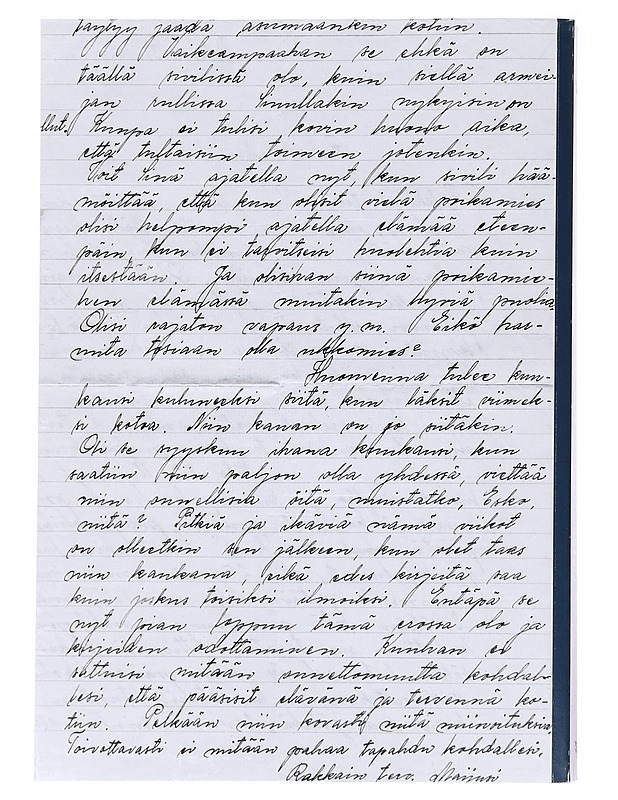 täytyy jäädä asumaankin kotiin.
Vaikeampaahan se ehkä on
täällä sivilissä olo, kuin siellä armei-
jan rullissa Sinullakin nykyisin on
llut. Kunpa ei tulisi kovin huono aika,
että tultaisiin toimeen jotenkin.
Voit Sinä ajatella nyt, kun sivili hää-
möittää, että kun olisit vielä poikamies
olisi helpompi ajatella elämää eteen-
päin, kun ei tarvitseisi huolehtia kuin
itsestään. Ja olisihan siinä poikamie-
hen elämässä muitakin hyviä puolia.
Olisi rajaton vapaus y.m. Eikö har-
mita tosiaan olla ukkomies?
Huomenna tulee kuu-
kausi kuluneeksi siitä, kun läksit viimek-
si kotoa. Niin kauan on jo siitäkin.
Oli se syyskuu ihana kuukausi, kun
saatiin niin paljon olla yhdessä, viettää
niin onnellisia öitä, muistatko, Esko,
niitä? Pitkiä ja ikäviä nämä viikot
on olleetkin sen jälkeen, kun olet taas
niin kaukana, eikä edes kirjeitä saa
kuin joskus toisiksi ilmoiksi. Entäpä se
nyt jo on loppuu tämä erossa olo ja
kirjeiden odottaminen. Kunhan ei
sattuisi mitään onnettomuutta kohdal-
lesi, että pääsisit elävänä ja tervennä ko-
tiin. Pelkään niin kovasti niitä miinoituksia.
Toivottavasti ei mitään pahaa tapahdu kohdallesi.
Rakkain terv. Maijusi